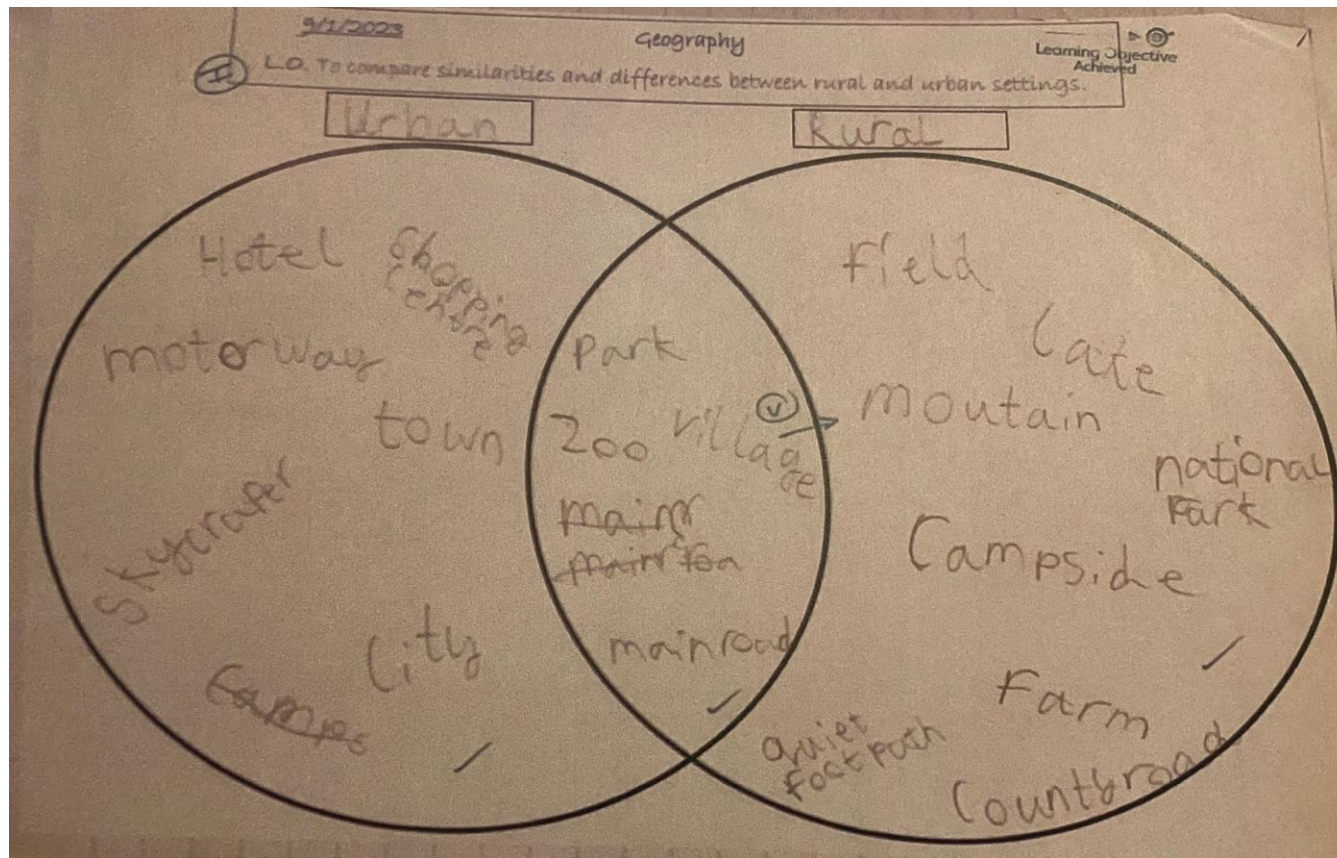 9/1/2023
Geography
Learning Objective
Achieved
L.O. To compare similarities and differences between rural and urban settings.
Urban
Rural
Hotel
Shopping
Centre
motorway
town
Skycraper
City
Camps
Park
Zoo
village
v
mainr
mainroa
mainroad
field
Cate
moutain
national
Park
Campside
Farm
quiet
footpath
Countyroad